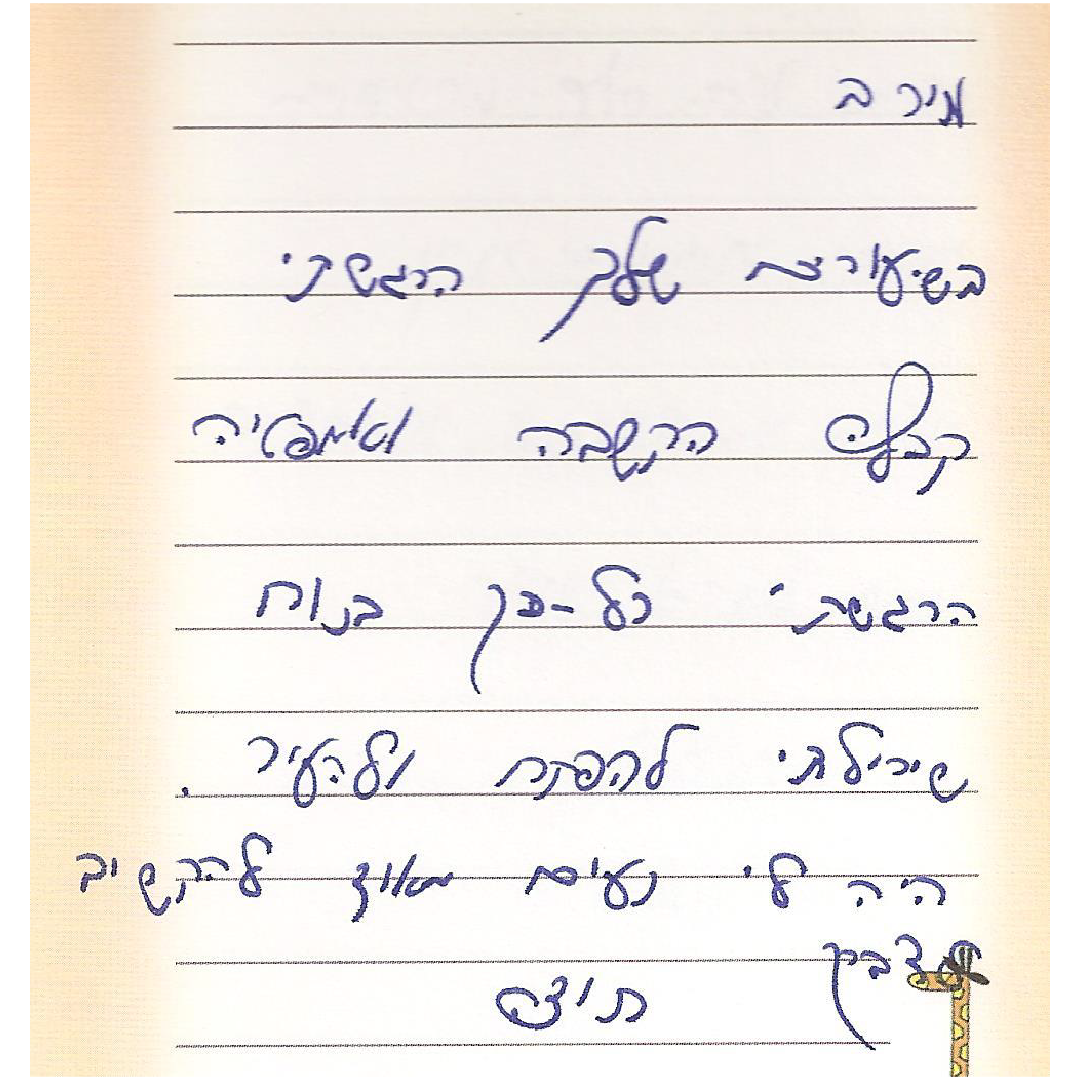 מירב
בשיעורים שלך הרגשתי
קבלה הקשבה ואמפטיה
הרגשתי כל-כך בנוח
שיכולתי להפתח ולהעיר.
היה לי נעים מאוד להקשיב
תודה